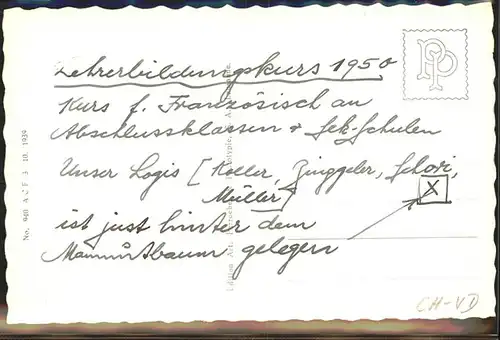 Lehrerbildungskurs 1950
Kurs f. Französisch an
Abschlussklassen + Sek-Schulen
Unser Logis [Koller, Zinggeler, Schori,
Müller]
X
ist just hinter dem
Mammutbaum gelegen
CH-VD
No. 940 A C F 3. 10. 1939
Edition Art. Perrochet
PP